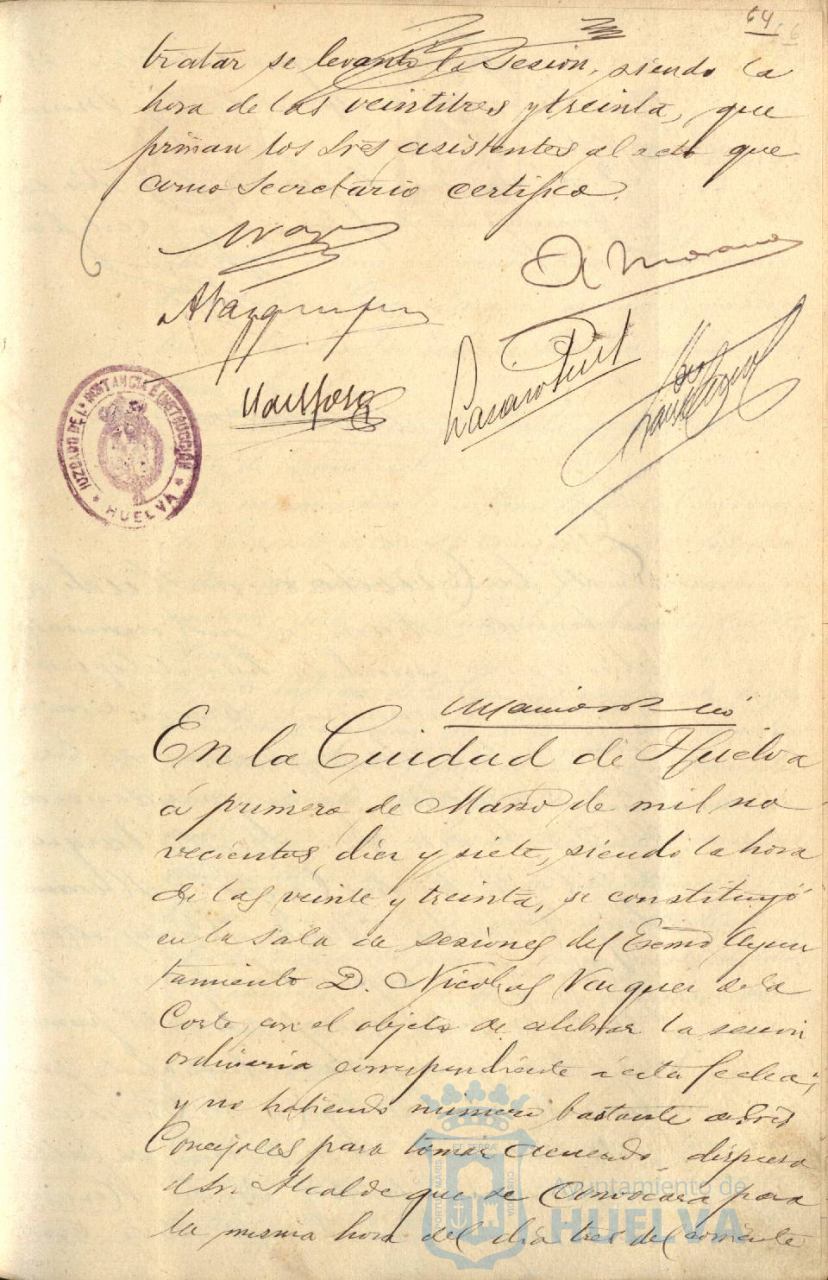 64
6
tratar se levantó la Sesión, siendo la
hora de las veintitres y treinta, que
firman los Sres asistentes al acto que
como Secretario certifico.
A. Morano
JUZGADO DE 1ª INSTANCIA E INSTRUCCIÓN
* HUELVA *
En la Cuidad de Huelva
á primero de Marzo de mil no
vecientos diez y siete, siendo la hora
de las veinte y treinta, se constituyó
en la sala de sesiones del Excmo Ayun
tamiento D. Nicolas Vazquez de la
Corte, con el objeto de celebrar la sesion
ordinaria correspondiente á esta fecha;
y no habiendo número bastante de Sres
Concejales para tomar acuerdo dispuso
el Sr. Alcalde que se convocara para
la misma hora del dia tres del corriente
Ayuntamiento de
HUELVA